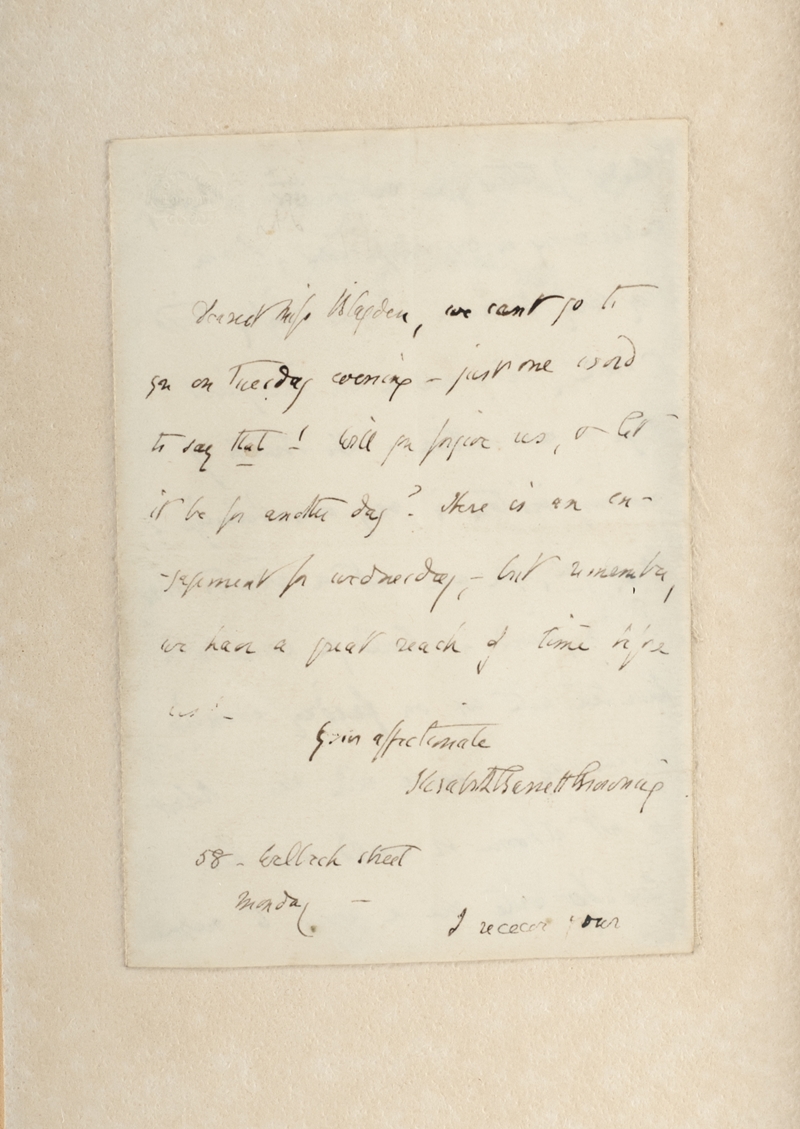 Dearest Miss Blagden, we cant go to
you on Tuesday evening - just one word
to say that! Will you forgive us, & let
it be for another day? Here is an en-
-gagement for wednesday, - but remember,
we have a great reach of time before
us! -
Your affectionate
Elizabeth Barrett Browning
58 - Welbeck street
Monday -
I receive your